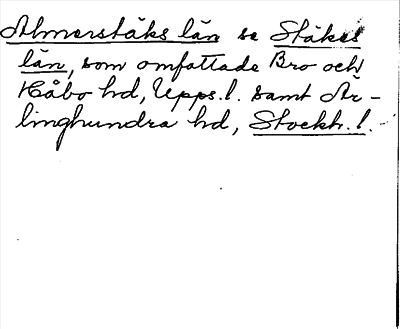 Almerstäks län se Stäkes
län, som omfattade Bro och
Håbo hd, Upps. l. samt Är-
linghundra hd, Stockh. l.